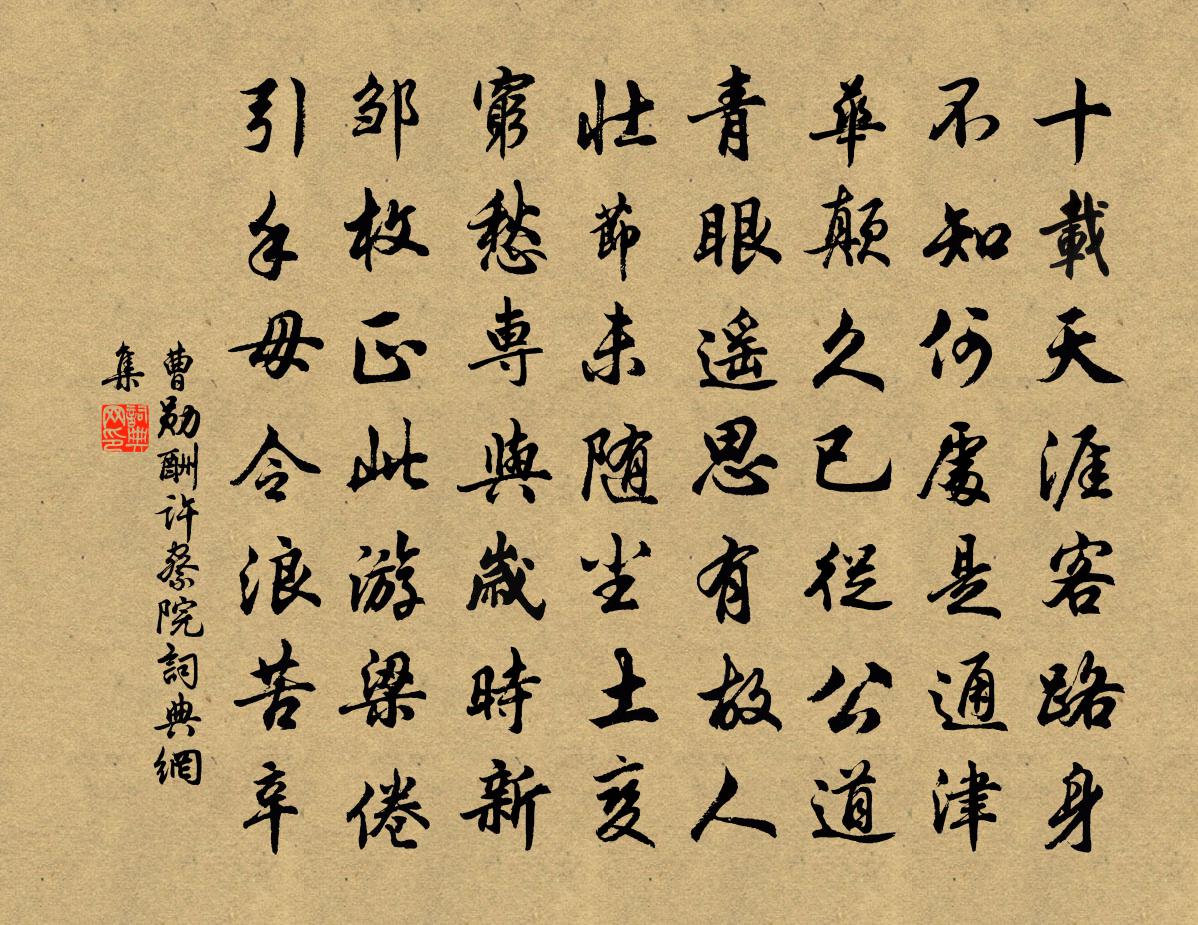 十載天涯客路身
不知何處是通津
華顛久已從公道
青眼遥思有故人
壯節未随尘土变
窮愁専與歲時新
邹枚正此游梁倦
引手毋令浪苦辛
曹勋酬许察院詞典網
集
詞典
网印